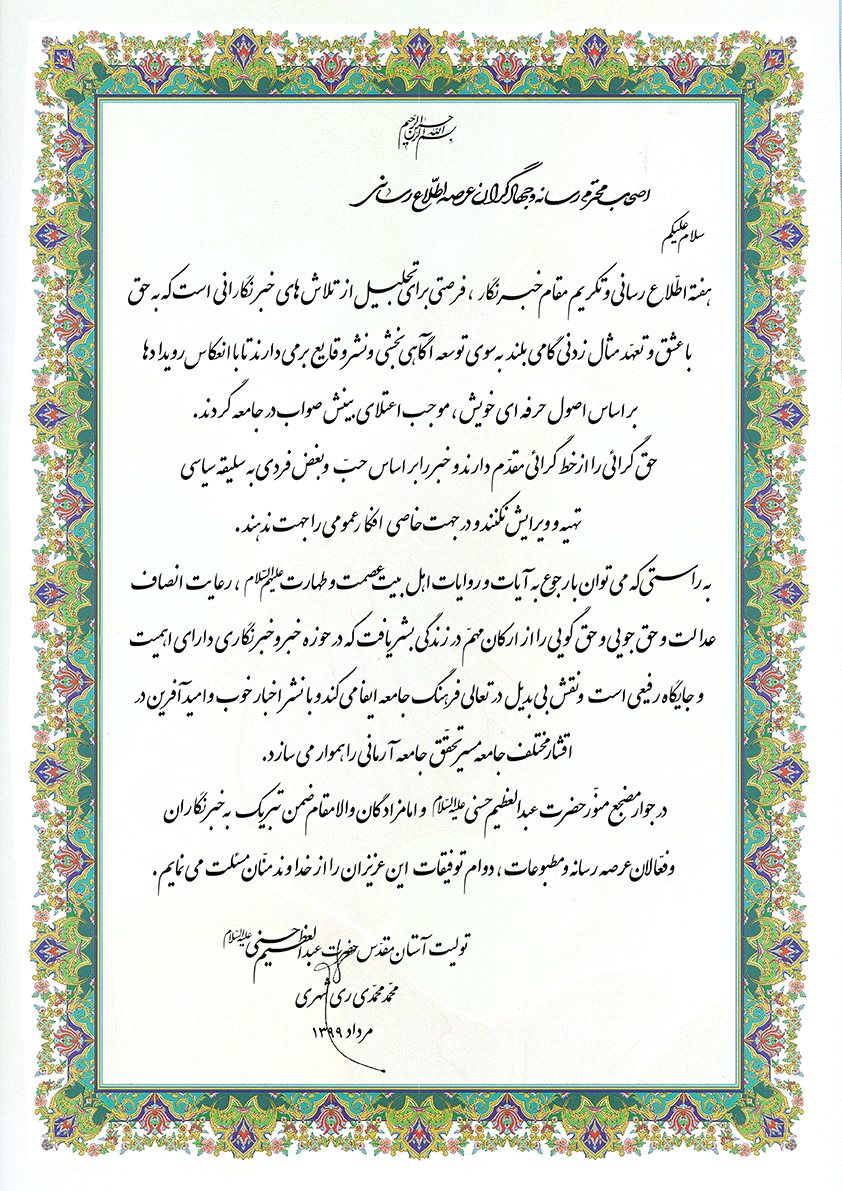 بسم الله الرحمن الرحیم
اصحاب محترم رسانه و جهادگران عرصه اطلاع رسانی
سلام علیکم
هفته اطلاع رسانی و تکریم مقام خبرنگار ، فرصتی برای تجلیل از تلاش های خبرنگارانی است که به حق
با عشق و تعهد مثال زدنی گامی بلند به سوی توسعه آگاهی بخشی و نشر وقایع برمی دارند تا با انعکاس رویدادها
بر اساس اصول حرفه ای خویش ، موجب اعتلای بینش صواب در جامعه گردند .
حق گرائی را از خط گرائی مقدّم دارند و خبر را بر اساس حبّ و بغض فردی به سلیقه سیاسی
تهیه و ویرایش نکنند و در جهت خاصی افکار عمومی را جهت ندهند .
به راستی که می توان با رجوع به آیات و روایات اهل بیت عصمت و طهارت علیهم السلام ، رعایت انصاف
عدالت و حق جویی و حق گویی را از ارکان مهمّ در زندگی بشر یافت که در حوزه خبر و خبرنگاری دارای اهمیت
و جایگاه رفیعی است و نقش بی بدیل در تعالی فرهنگ جامعه ایفا می کند و با نشر اخبار خوب و امید آفرین در
اقشار مختلف جامعه مسیر تحقّق جامعه آرمانی را هموار می سازد .
در جوار مضجع منوّر حضرت عبدالعظیم حسنی علیه السلام و امامزادگان والامقام ضمن تبریک به خبرنگاران
و فعّالان عرصه رسانه و مطبوعات ، دوام توفیقات این عزیزان را از خداوند منّان مسئلت می نمایم .
تولیت آستان مقدّس حضرت عبدالعظیم حسنی علیه السلام
محمّد محمّدی ری شهری
مرداد ۱۳۹۹